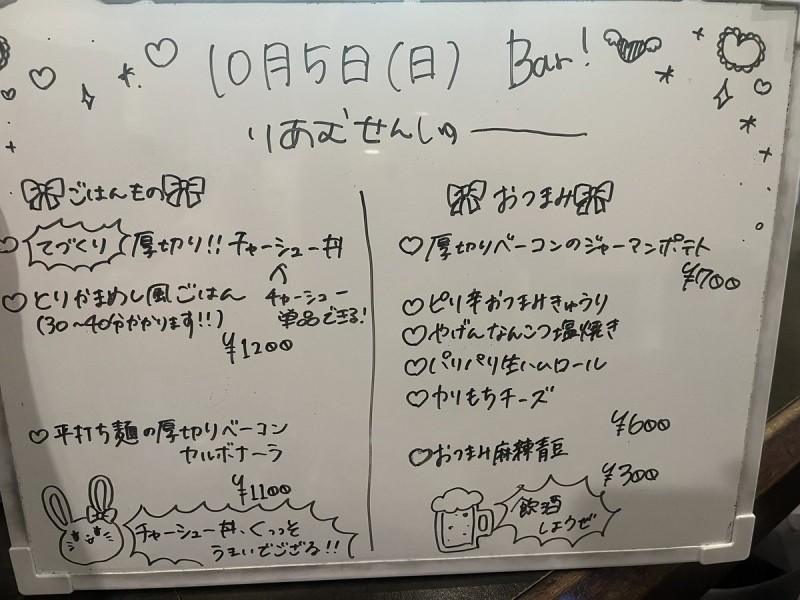 10月5日(日) Bar!
りあむせんしゅー
ごはんもの
てづくり 厚切り!! チャーシュー丼
チャーシュー
単品できる!
とりかまめし風ごはん
(30〜40分かかります!!)
¥1200
平打ち麺の厚切りベーコン
カルボナーラ
¥1100
チャーシュー丼、くっっそ
うまいでござる!!
おつまみ
厚切りベーコンのジャーマンポテト
¥700
ピリ辛おつまみきゅうり
やげんなんこつ塩焼き
パリパリ生ハムロール
カリもちチーズ
¥600
おつまみ麻辣青豆
¥300
飲酒
しようぜ